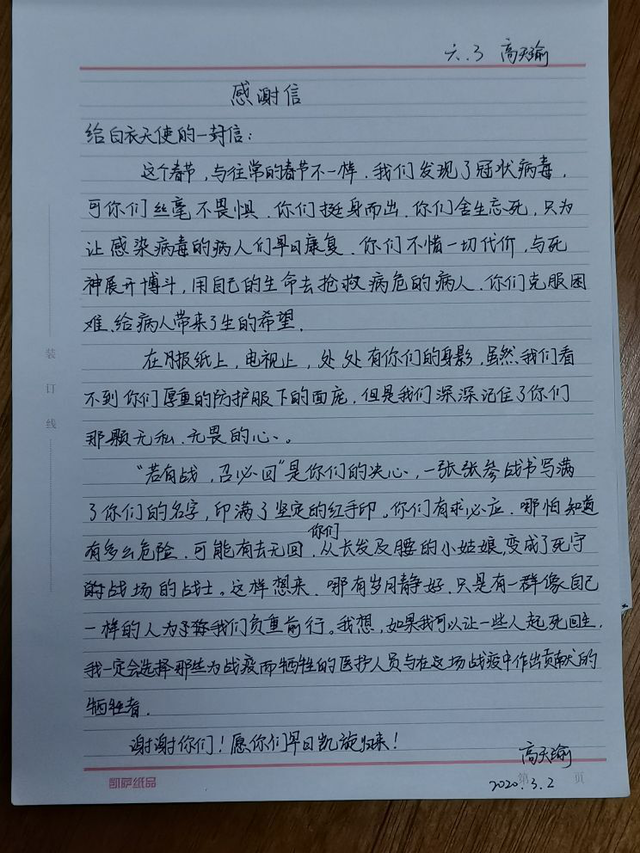 六.3 高天瑜
感谢信
给白衣天使的一封信：
这个春节，与往常的春节不一样，我们发现了冠状病毒，
可你们丝毫不畏惧，你们挺身而出，你们舍生忘死，只为
让感染病毒的病人们早日康复，你们不惜一切代价，与死
神展开博斗，用自己的生命去抢救病危的病人，你们克服困
难，给病人带来了生的希望。
在报纸上，电视上，处处有你们的身影，虽然我们看
不到你们厚重的防护服下的面庞，但是我们深深记住了你们
那颗无私、无畏的心。
“若有战，召必回”是你们的决心，一张张参战书写满
了你们的名字，印满了坚定的红手印。你们有求必应，哪怕知道
你们
有多么危险，可能有去无回，从长发及腰的小姑娘，变成了死守
战场的战士。这样想来，哪有岁月静好，只是有一群像自己
一样的人为了我们负重前行。我想，如果我可以让一些人起死回生，
我一定会选择那些为战疫而牺牲的医护人员与在这场战疫中作出贡献的
牺牲者。
谢谢你们！愿你们早日凯旋归来！
高天瑜
2020.3.2
凯萨纸品
第 页
装
订
线